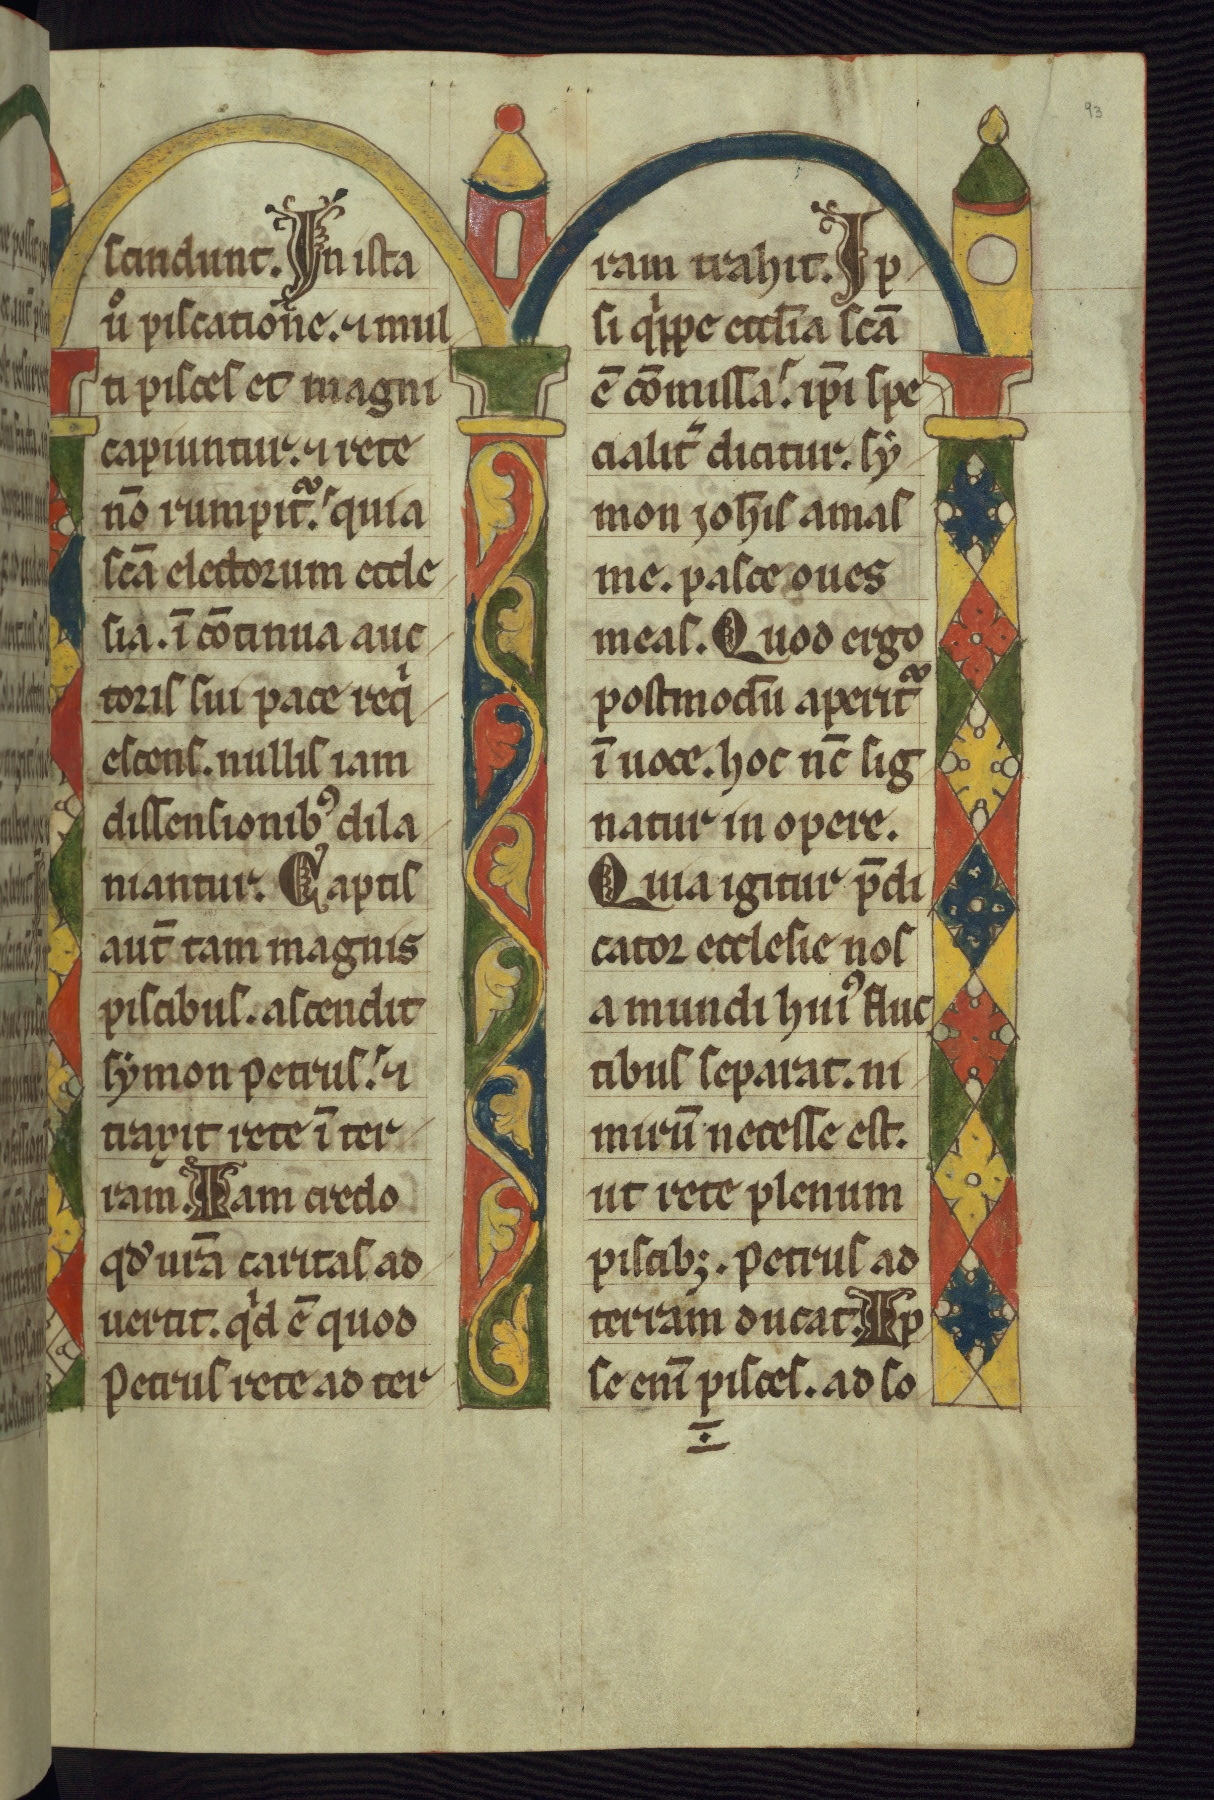 scindunt. In ista
uͦ piscatiōne. ⁊ mul
ti pisces et magni
capiuntur. ⁊ rete
nō rumpit᷑. quia
scā electorum eccle
sia. ī cōtinua auc
toris sui pace reqͥ
escens. nullis iam
dissensionibꝰ dila
niantur. Captis
aut̄ tam magnis
piscibus. ascendit
symon petrus. ⁊
traxit rete ī ter
ram. Iam credo
qd̓ ur̄a caritas ad
uertit. qͥd ē quod
petrus rete ad ter
93
ram trahit. Ip
si qͥppe ecclīa scā
ē cōmissa. ip̄i spe
cialit᷑ dicitur. sy
mon ioh̄is amas
me. pasce oues
meas. Quod ergo
postmodū aperit᷑
ī uoce. hoc nc̄ sig
natur in opere.
Quia igitur p̄di
cator ecclesie nos
a mundi huiꝰ fluc
tibus separat. ni
mirū necesse est.
ut rete plenum
piscibꝫ. petrus ad
terram ducat. Ip
se eni̅ pisces. ad so